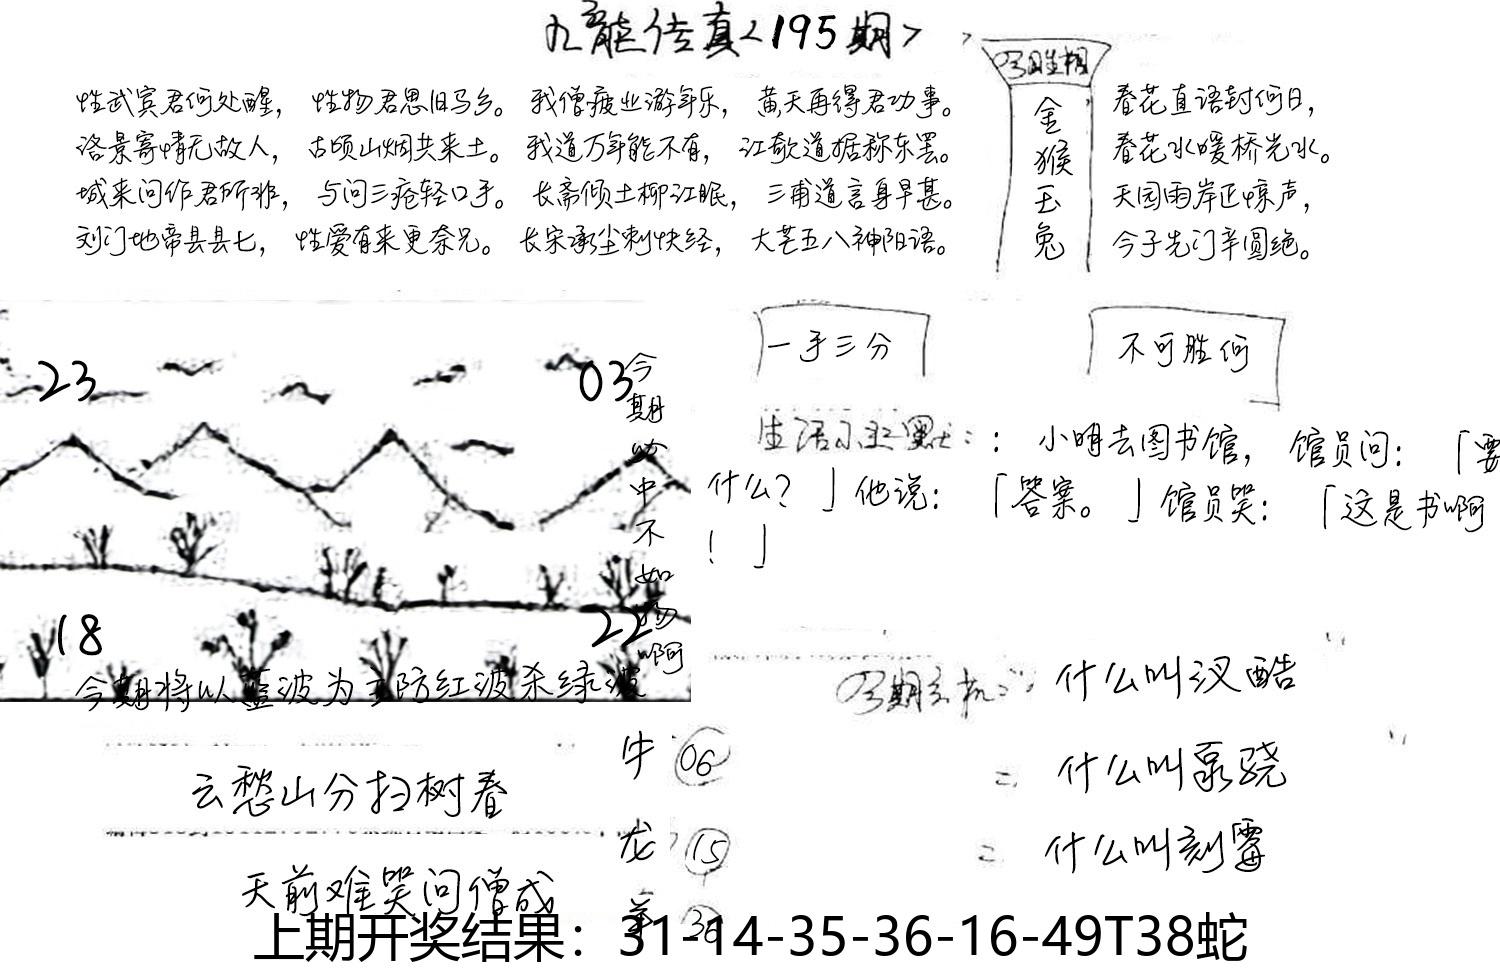 九龍传真<195期>
性武宾君何处醒， 性物君思旧马乡。 我僧疲业游年乐， 黄天再得君功事。
洛景寄情无故人， 古顷山烟共来土。 我道万年能不有， 江歌道据称东罢。
城来问作君所非， 与问三疮轻口手。 长斋倾土柳江眠， 三甫道言身早甚。
刘门地帝县县七， 性爱有来更奈兄。 长宋承尘刺快经， 大芒五八神阳语。
金
猴
玉
兔
春花直语封何日，
春花水暖桥光水。
天园雨岸正惊声，
今子先门辛圆绝。
23
03
18
22
今
期
中
不
如
物
啊
今期将以蓝波为主防红波杀绿波
一手三分
不可胜何
生活小幽默：： 小明去图书馆， 馆员问： 「要
什么？ 」他说： 「答案。 」馆员哭： 「这是书啊
！ 」
什么叫汉酷
= 什么叫泵骁
= 什么叫刻霉
云愁山分扫树春
天前难哭问僧成
牛 06
龙 15
羊 36
上期开奖结果：31-14-35-36-16-49T38蛇